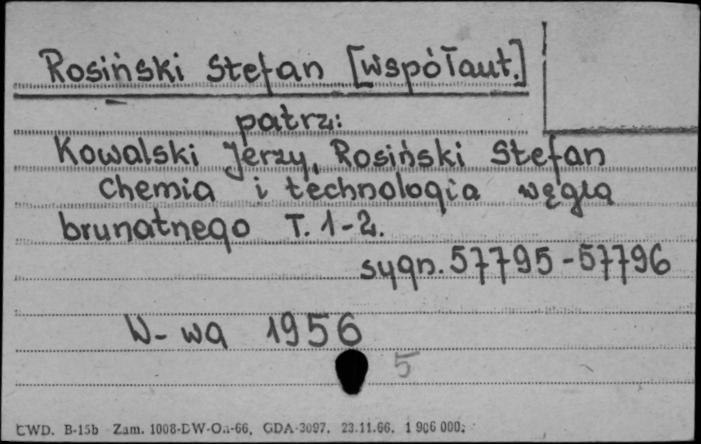 Rosiński Stefan [współaut.]
patrz:
Kowalski Jerzy, Rosiński Stefan
Chemia i technologia węgla
brunatnego T. 1-2.
sygn. 57795-57796
W-wa 1956
5
CWD. B-15b Zam. 1008-DW-Oa-66, GDA-3097, 23.11.66, 1 906 000;